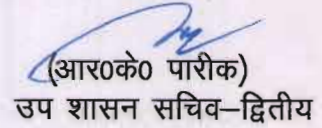 (आर0के0 पारीक)
उप शासन सचिव–द्वितीय